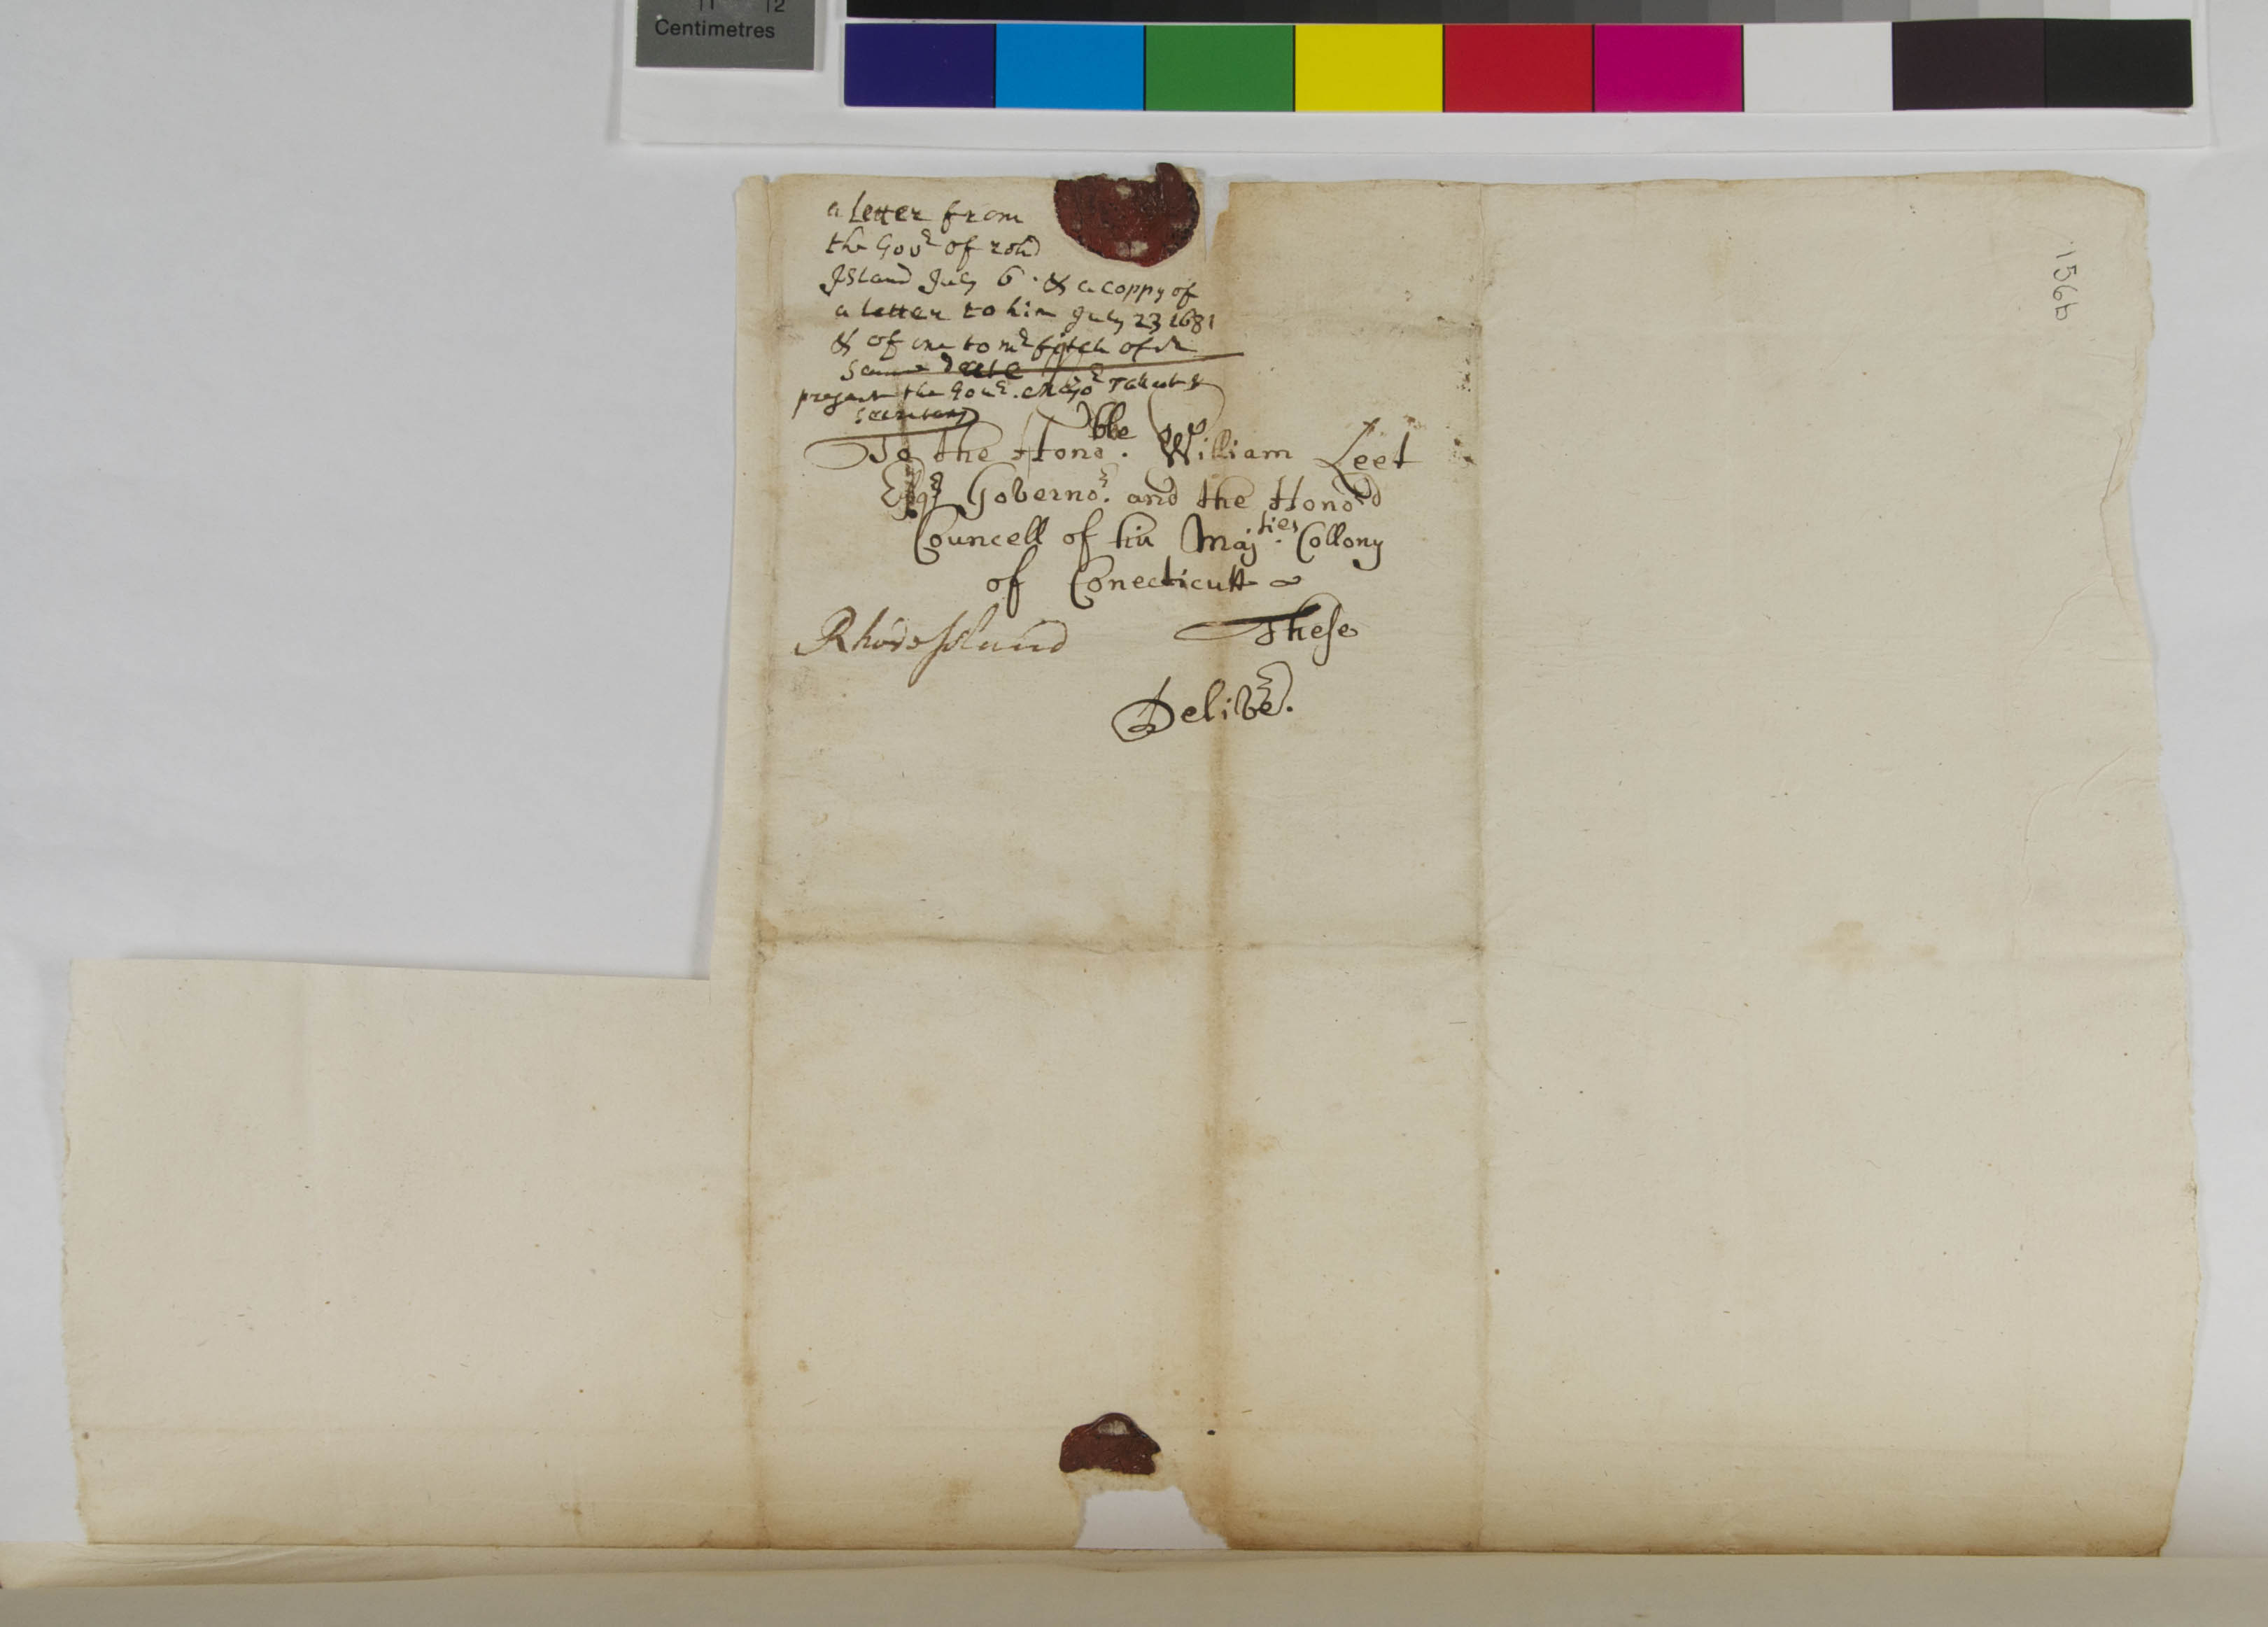 1 2
Centimetres
a Letter from
the Gov^r of rohd
JsLand July 6 . & a coppy of
a Letter to him July 23 1681
& of one to m^r fitch of
same date
present the Gou^r . Majo^r Talcott &
secretary
To the Hono^ble. William Leet
Esq^r Governo^r. and the Hono^rd
Councell of his Maj^ties. Collony
of Conecticutt
RhodeJsland These
Delive^r.
156b